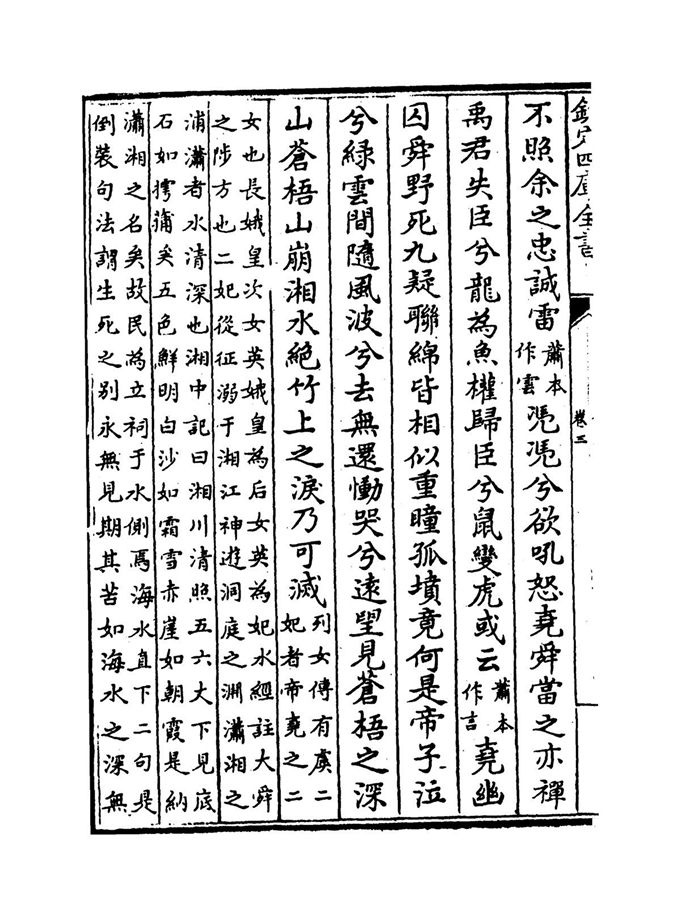 欽定四庫全書
卷三
不照余之忠誠雷蕭本作雲憑憑兮欲吼怒堯舜當之亦禪
禹君失臣兮龍為魚權歸臣兮鼠變虎或云蕭本作言堯幽
囚舜野死九疑聯綿皆相似重瞳孤墳竟何是帝子泣
兮綠雲間隨風波兮去無還慟哭兮遠望見蒼梧之深
山蒼梧山崩湘水絶竹上之淚乃可滅列女傳有虞二
妃者帝堯之二
女也長娥皇次女英娥皇為后女英為妃水經註大舜
之陟方也二妃從征溺于湘江神遊洞庭之淵瀟湘之
浦瀟者水清深也湘中記曰湘川清照五六丈下見底
石如摴蒱矣五色鮮明白沙如霜雪赤崖如朝霞是納
瀟湘之名矣故民為立祠于水側焉海水直下二句是
倒装句法謂生死之别永無見期其苦如海水之深無